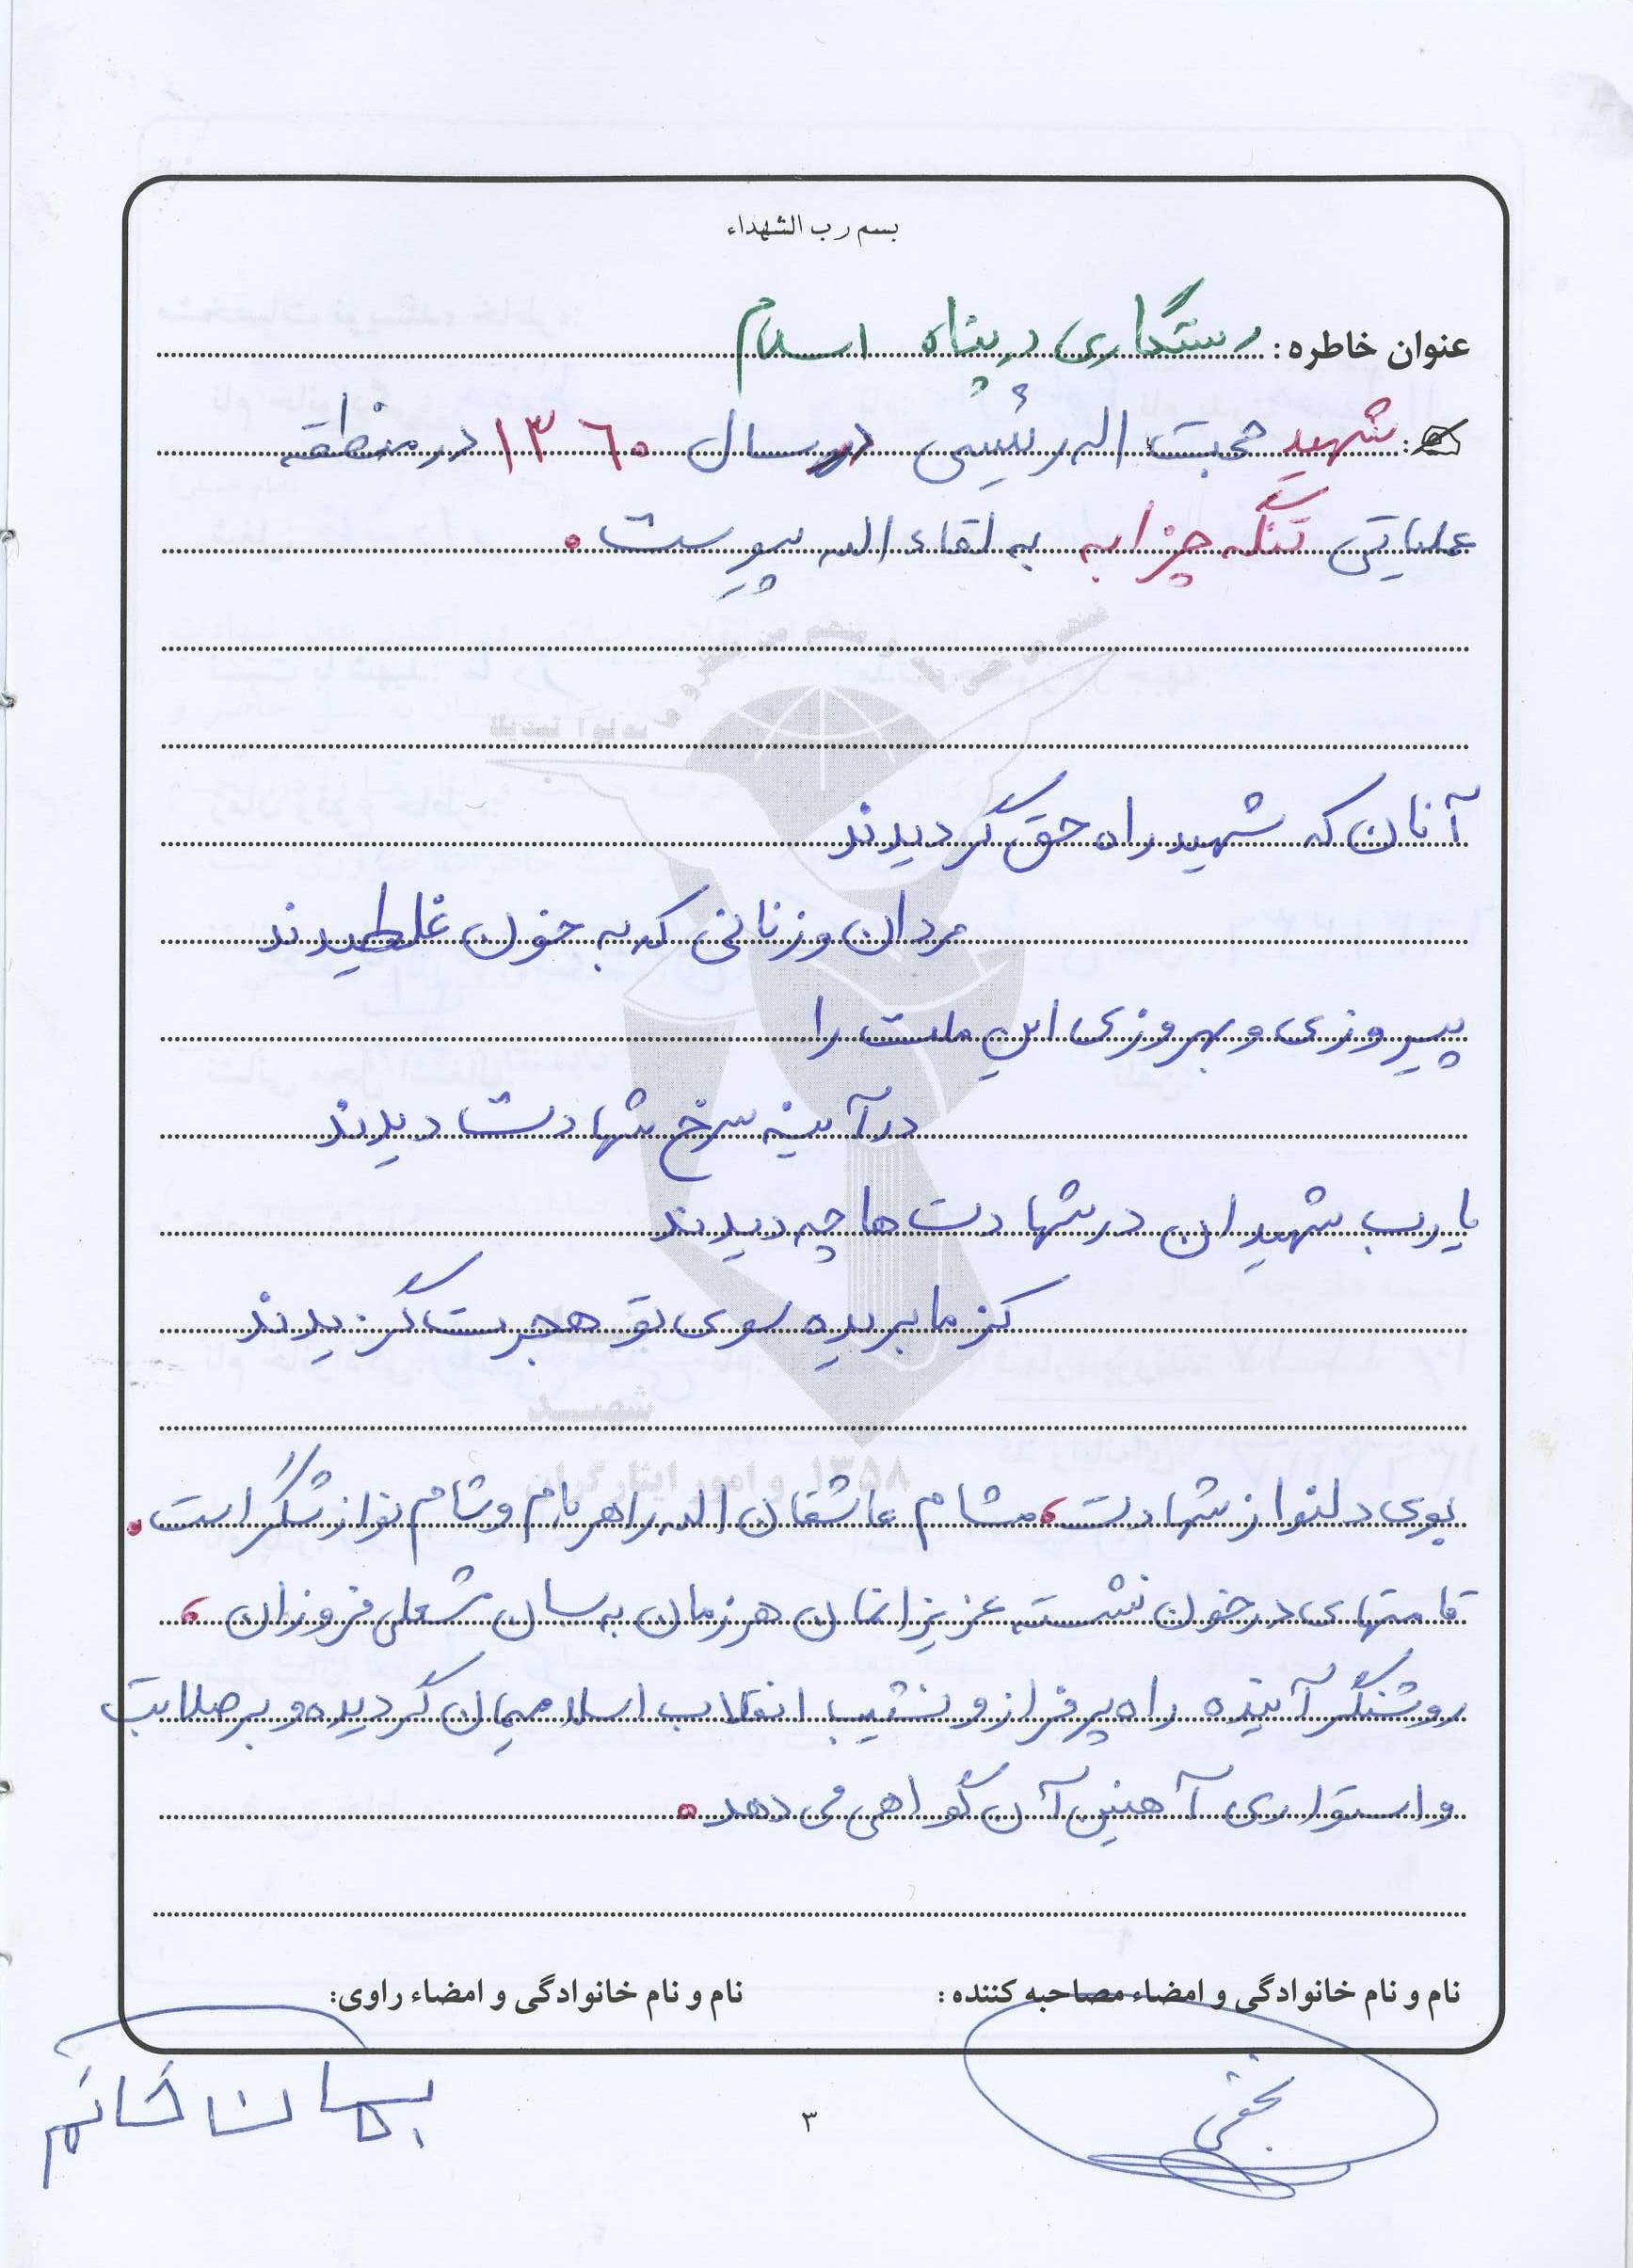 بسم رب الشهداء
عنوان خاطره: رستگاری در پناه اسلام
شهید حجت اله رئیسی در سال ۱۳۶۰ در منطقه
عملیاتی تنگه چزابه به لقاء الله پیوست.
آنان که شهید راه حق گردیدند
مردان و زنانی که به خون غلطیدند
پیروزی و بهروزی این ملت را
در آینه سرخ شهادت دیدند
یا رب شهیدان در شهادت ها چه دیدند
کز ما بریده سوی تو هجرت گزیدند
بوی دلنواز شهادت، مشام عاشقان الله را هر بام و شام نوازشگر است.
قامتهای در خون نشسته عزیزانمان هر زمان به سان مشعلی فروزان،
روشنگر آینده راه پر فراز و نشیب انقلاب اسلامیمان گردیده و بر صلابت
و استواری آهنین آن گواهی می دهد.
نام و نام خانوادگی و امضاء مصاحبه کننده:
نام و نام خانوادگی و امضاء راوی:
۳